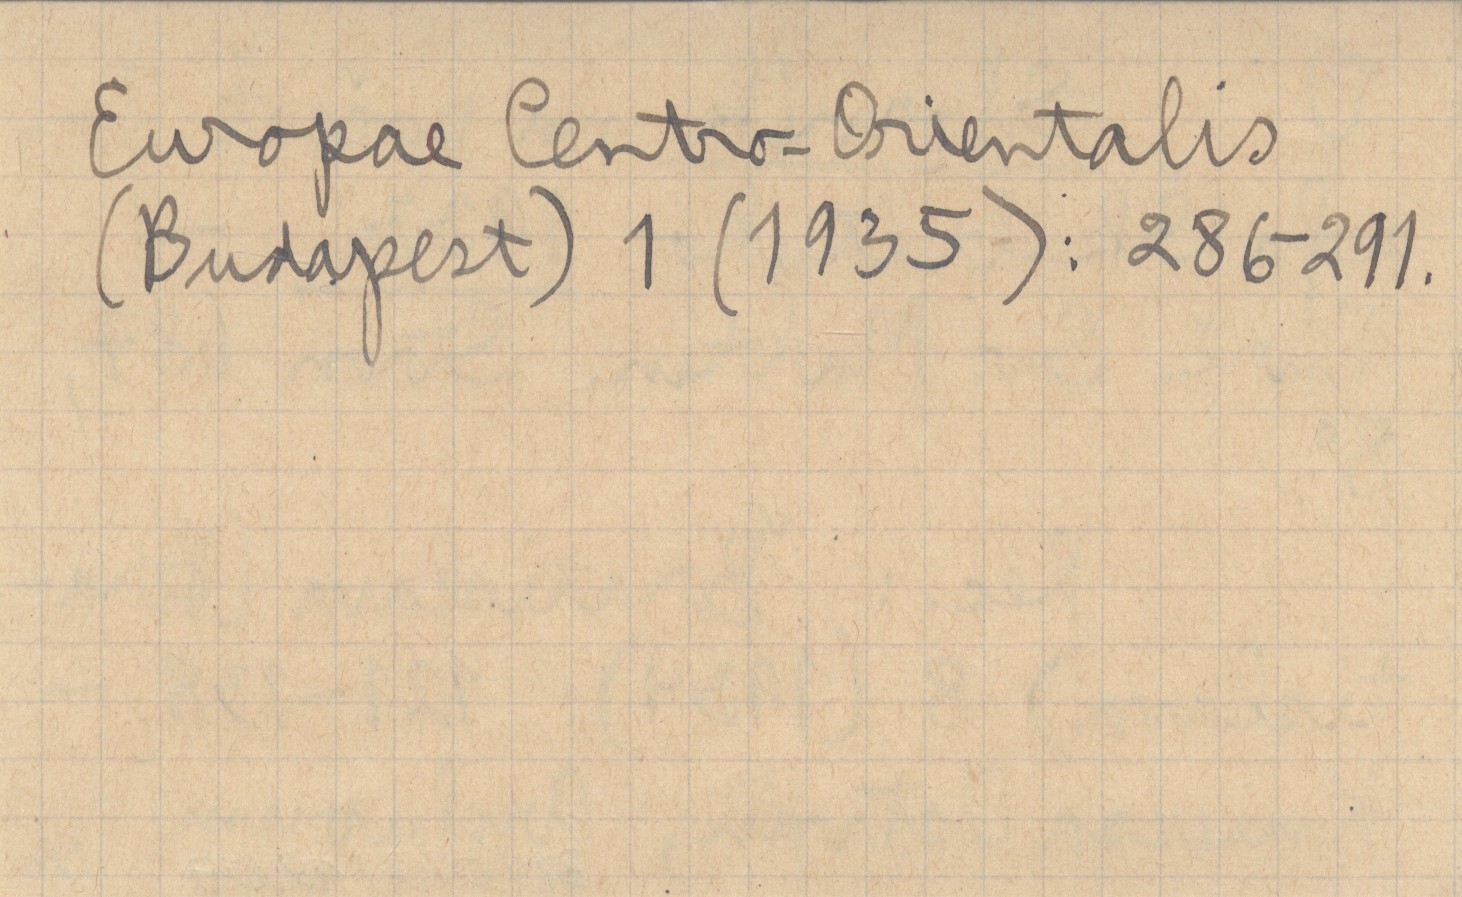 Europae Centro-Orientalis
(Budapest) 1 (1935): 286-291.